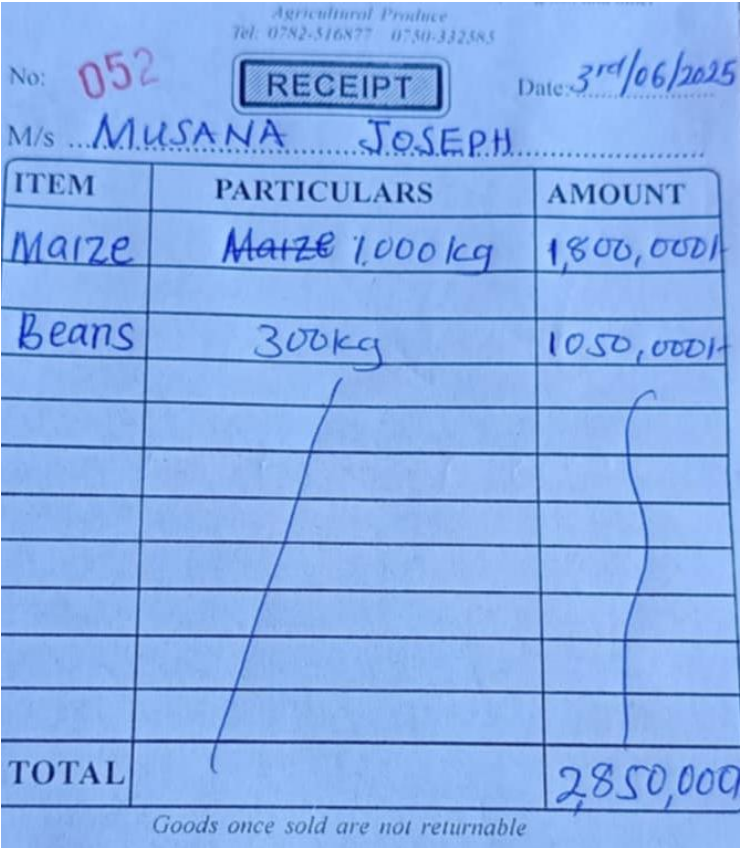 Agricultural Produce
Tel: 0782-516877 0750-332585
No: 052 RECEIPT Date: 3rd/06/2025
M/s MUSANA JOSEPH
ITEM PARTICULARS AMOUNT
Maize Maize 1,000kg 1,800,000/-
Beans 300kg 1050,000/-
TOTAL 2,850,000
Goods once sold are not returnable